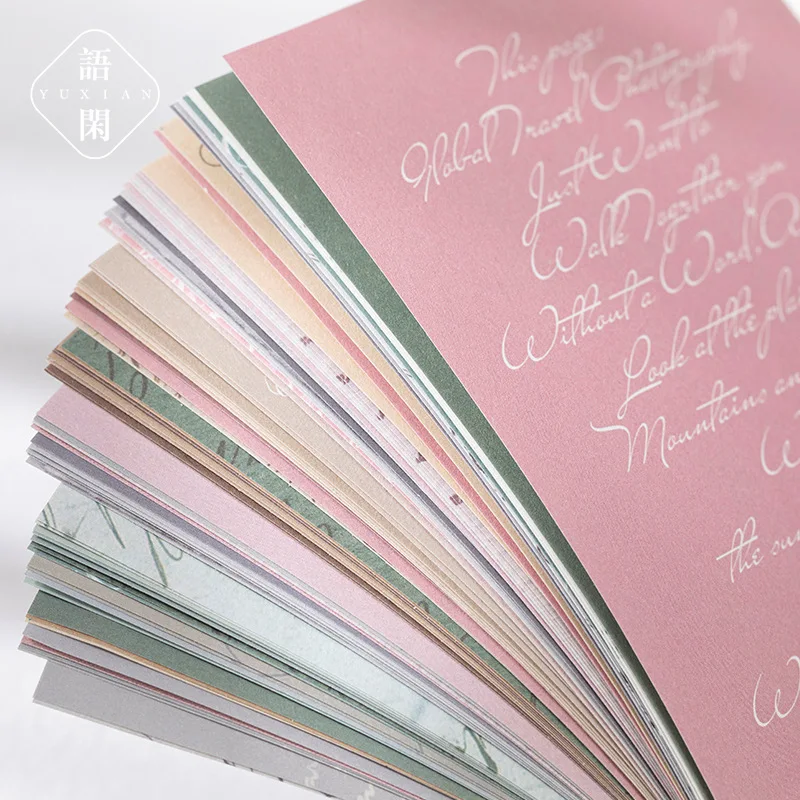 語
YUXIAN
閑
This page,
Global Travel Photography
Just Want to
Walk Together you
Without a Word,
Look at the
Mountains
the